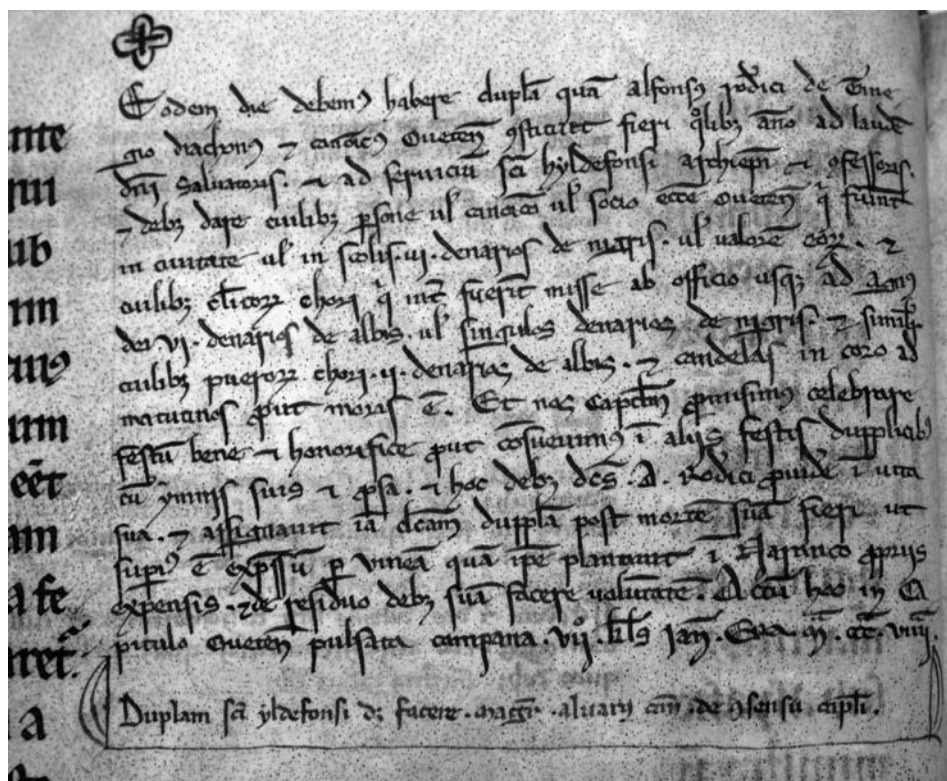 Eodem die debemꝰ habere duplā quā alfonsꝰ rod̄ici de Tine
gio diachonꝰ ⁊ canōicꝰ Oueteñ ꝯstituit fieri q̄libꝫ año ad laudē
dñi Saluatoris. ⁊ ad seruiciū sc̄i hyldefonsi archiep̄i ⁊ ꝯfessoris.
⁊ debꝫ dare cuilibꝫ ꝑsone ul̄ canōico ul̄ socio ecc̄e Oueteñ q̄ fuīnt
in ciuitate ul̄ in scolis .vi. denarios de nigris. ul̄ valorē eoꝝ. ⁊
cuilibꝫ cl̄icoꝝ chori q̄ int̄ fuerit misse ab officio usqꝫ ad Agnꝰ
dei vi. denarios de albis. ul̄ singulos denarios de nigris. ⁊ simil̄r
cuilibꝫ pueroꝝ chori .ii. denarios de albis. ⁊ candelas in coro ad
matutinos ꝓut moris ē. Et nos Capl̄m ꝓmisimꝰ celebrare
festū bene ⁊ honorifice ꝓut cōsueuimꝰ ī aliis festis dupplicibꝰ
cū ymnis suis ⁊ ꝓsa. ⁊ hoc debꝫ dc̄s .A. Rod̄ici ꝓuidē ī uita
sua. ⁊ assignauit iā dc̄am dupplā post mortē suā fieri ut
supiꝰ ē exp̄ssū ꝑ vineā quā ip̄e plantauit ī Naranco ꝓpriis
expensis. ⁊ de residuo debꝫ suā facere uolūtatē. Actū hoc in Ca
pitulo Oueteñ pulsata campana. vii̊. kl̄s Iañ. Era. m̄. cc̄. viiii.
Duplam sc̄i yldefonsi dꝫ facere. magr̄. aluarꝰ de ꝯsensu capl̄i.